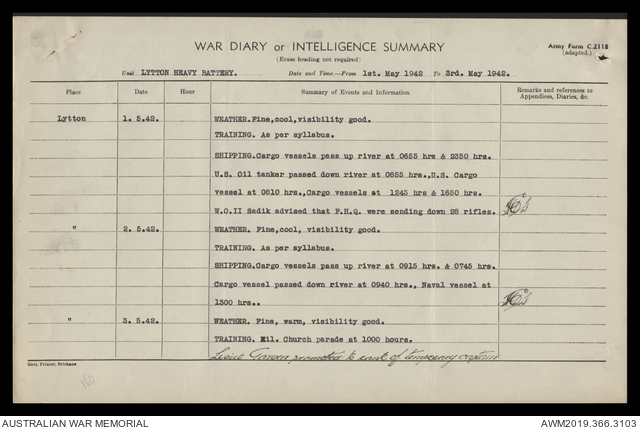 WAR DIARY or INTELLIGENCE SUMMARY
Army Form C.2118
(adapted.)
(Erase heading not required)
Unit LYTTON HEAVY BATTERY. Date and Time.—From 1st. May 1942 To 3rd. May 1942.
Place Date Hour Summary of Events and Information Remarks and references to
Appendices, Diaries, &c.
Lytton 1. 5.42. WEATHER.Fine,cool,visibility good.
TRAINING. As per syllabus.
SHIPPING.Cargo vessels pass up river at 0655 hrs & 2350 hrs.
U.S. Oil tanker passed down river at 0855 hrs.,U.S. Cargo
vessel at 0810 hrs.,Cargo vessels at 1245 hrs & 1650 hrs.
W.O.II Sadik advised that F.H.Q. were sending down 28 rifles.
" 2. 5.42. WEATHER. Fine,cool, visibility good.
TRAINING. As per syllabus.
SHIPPING.Cargo vessels pass up river at 0915 hrs. & 0745 hrs.
Cargo vessel passed down river at 0940 hrs., Naval vessel at
1300 hrs..
" 3. 5.42. WEATHER. Fine, warm, visibility good.
TRAINING. Nil. Church parade at 1000 hours.
Lieut promoted to rank of temporary captain
Govt. Printer, Brisbane
AUSTRALIAN WAR MEMORIAL
AWM2019.366.3103